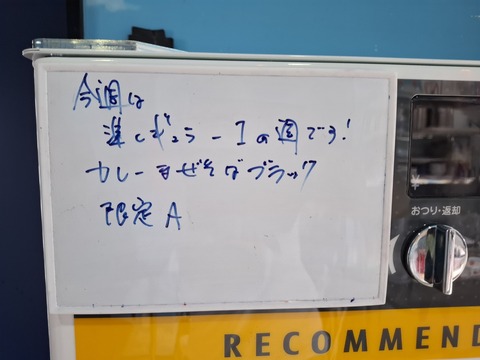 今週は
準レギュラー Iの週です!
カレーまぜそばブラック
限定 A
おつり・返却
RECOMMEND